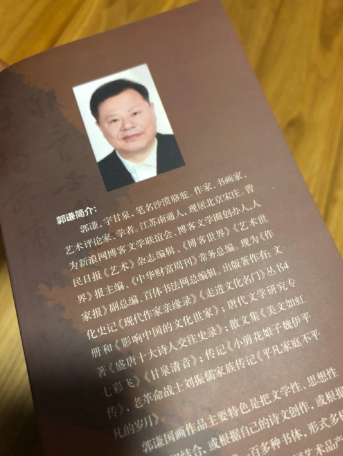 郭谦简介：
郭谦，字甘泉，笔名沙漠骆驼。作家、书画家、
艺术评论家、学者。江苏南通人，现居北京宋庄。曾
为新浪网博客文学联谊会、博客文学圈创办人，人
民日报《艺术》杂志编辑、《博客世界》《艺术世
界》报主编、《中华财富周刊》常务总编。现为《作
家报》副总编、百体书法网总编辑。出版著作有：文
化史记《现代作家亲缘录》《走进文化名门》丛书4
册和《影响中国的文化世家》；唐代文学研究专
著《盛唐十大诗人交往史录》；散文集《美文如虹
七彩飞》《甘泉清音》；传记《小剪花娘子魏伊平
传》，老革命战士刘振儒家族传记《平凡家庭不平
凡的岁月》。
郭谦国画作品主要特色是把文学性、思想性
相结合，或根据自己的诗文创作，或根
百多种书体，形式多样
艺术品产